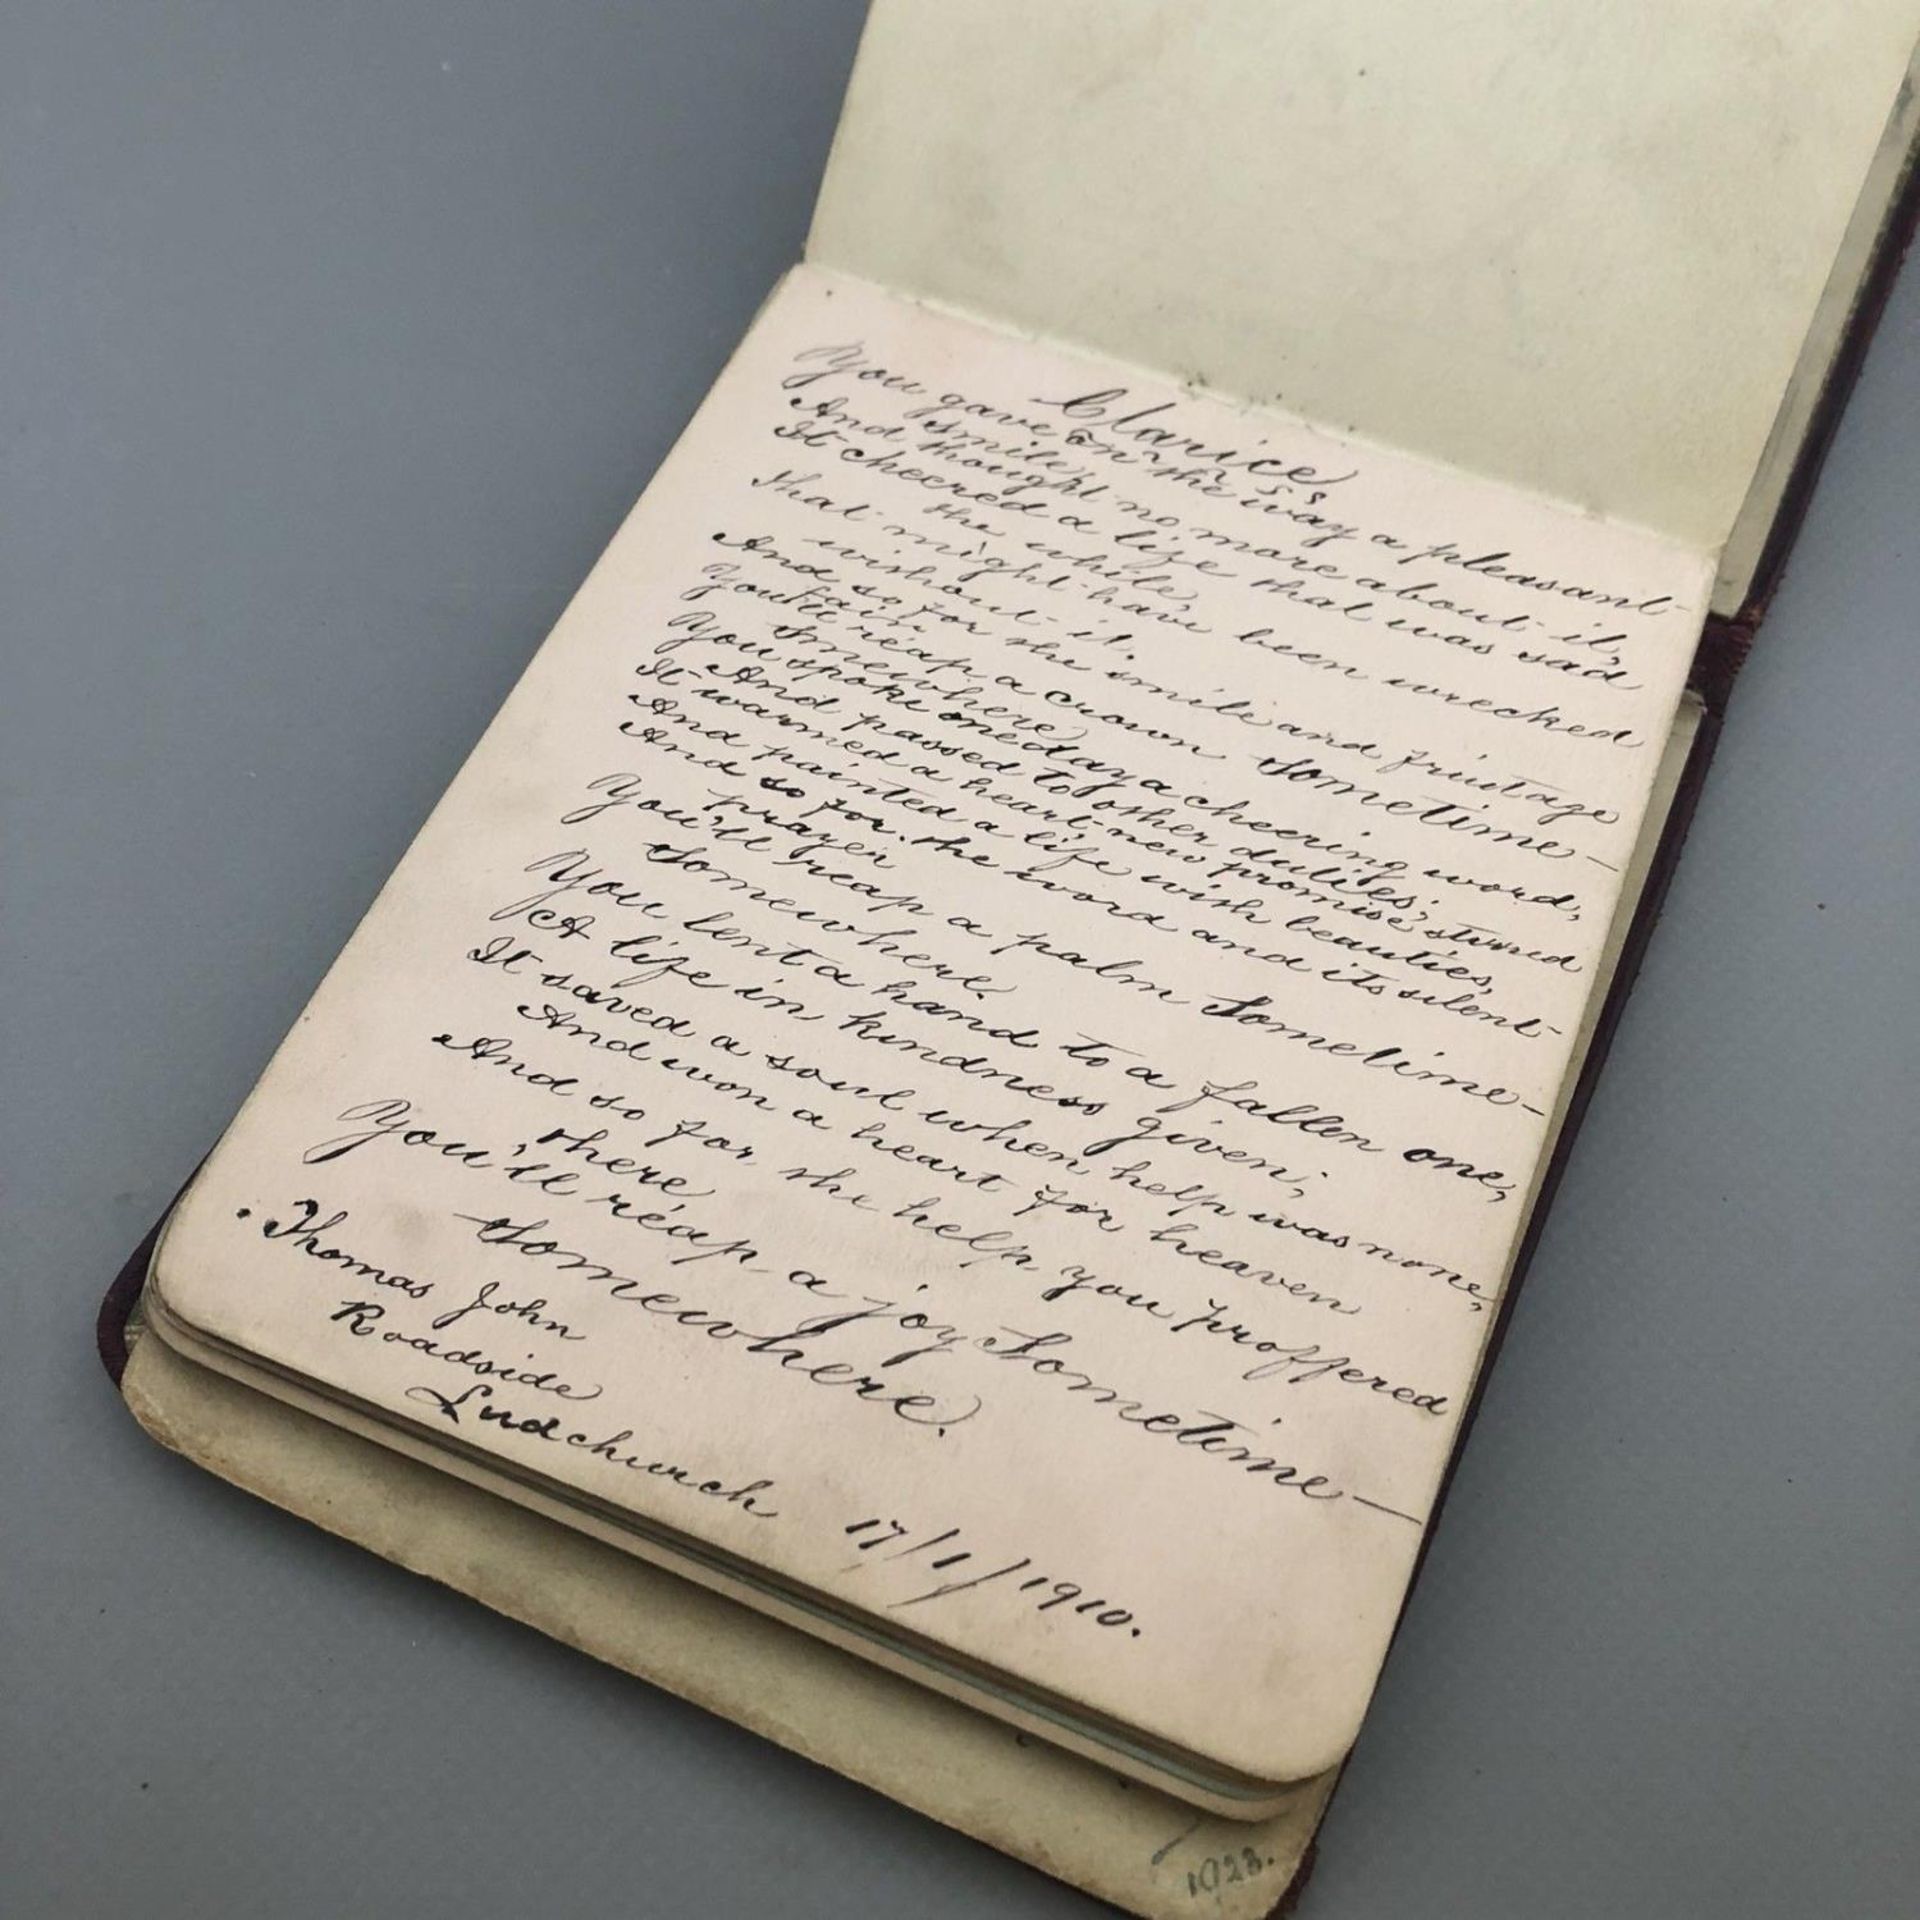 Clarice
You gave on the way a pleasant
smile,
And thought no more about it,
It cheered a life that was sad
the while,
That might have been wrecked
without it.
And so for the smile and fruitage
fair
You'll reap a crown Sometime—
Smewhere
You spoke one day a cheering word,
And passed to other duties;
It warmed a heart, new promise stirred
And painted a life with beauties,
And so for the word and its silent
prayer
You'll reap a palm Sometime—
Somewhere.
You lent a hand to a fallen one,
A life in kindness given;
It saved a soul when help was none,
And won a heart for heaven
And so for the help you proffered
there
You'll reap a joy Sometime—
Somewhere.
Thomas John
Roadside
Ludchurch
17/1/1910.
1923.